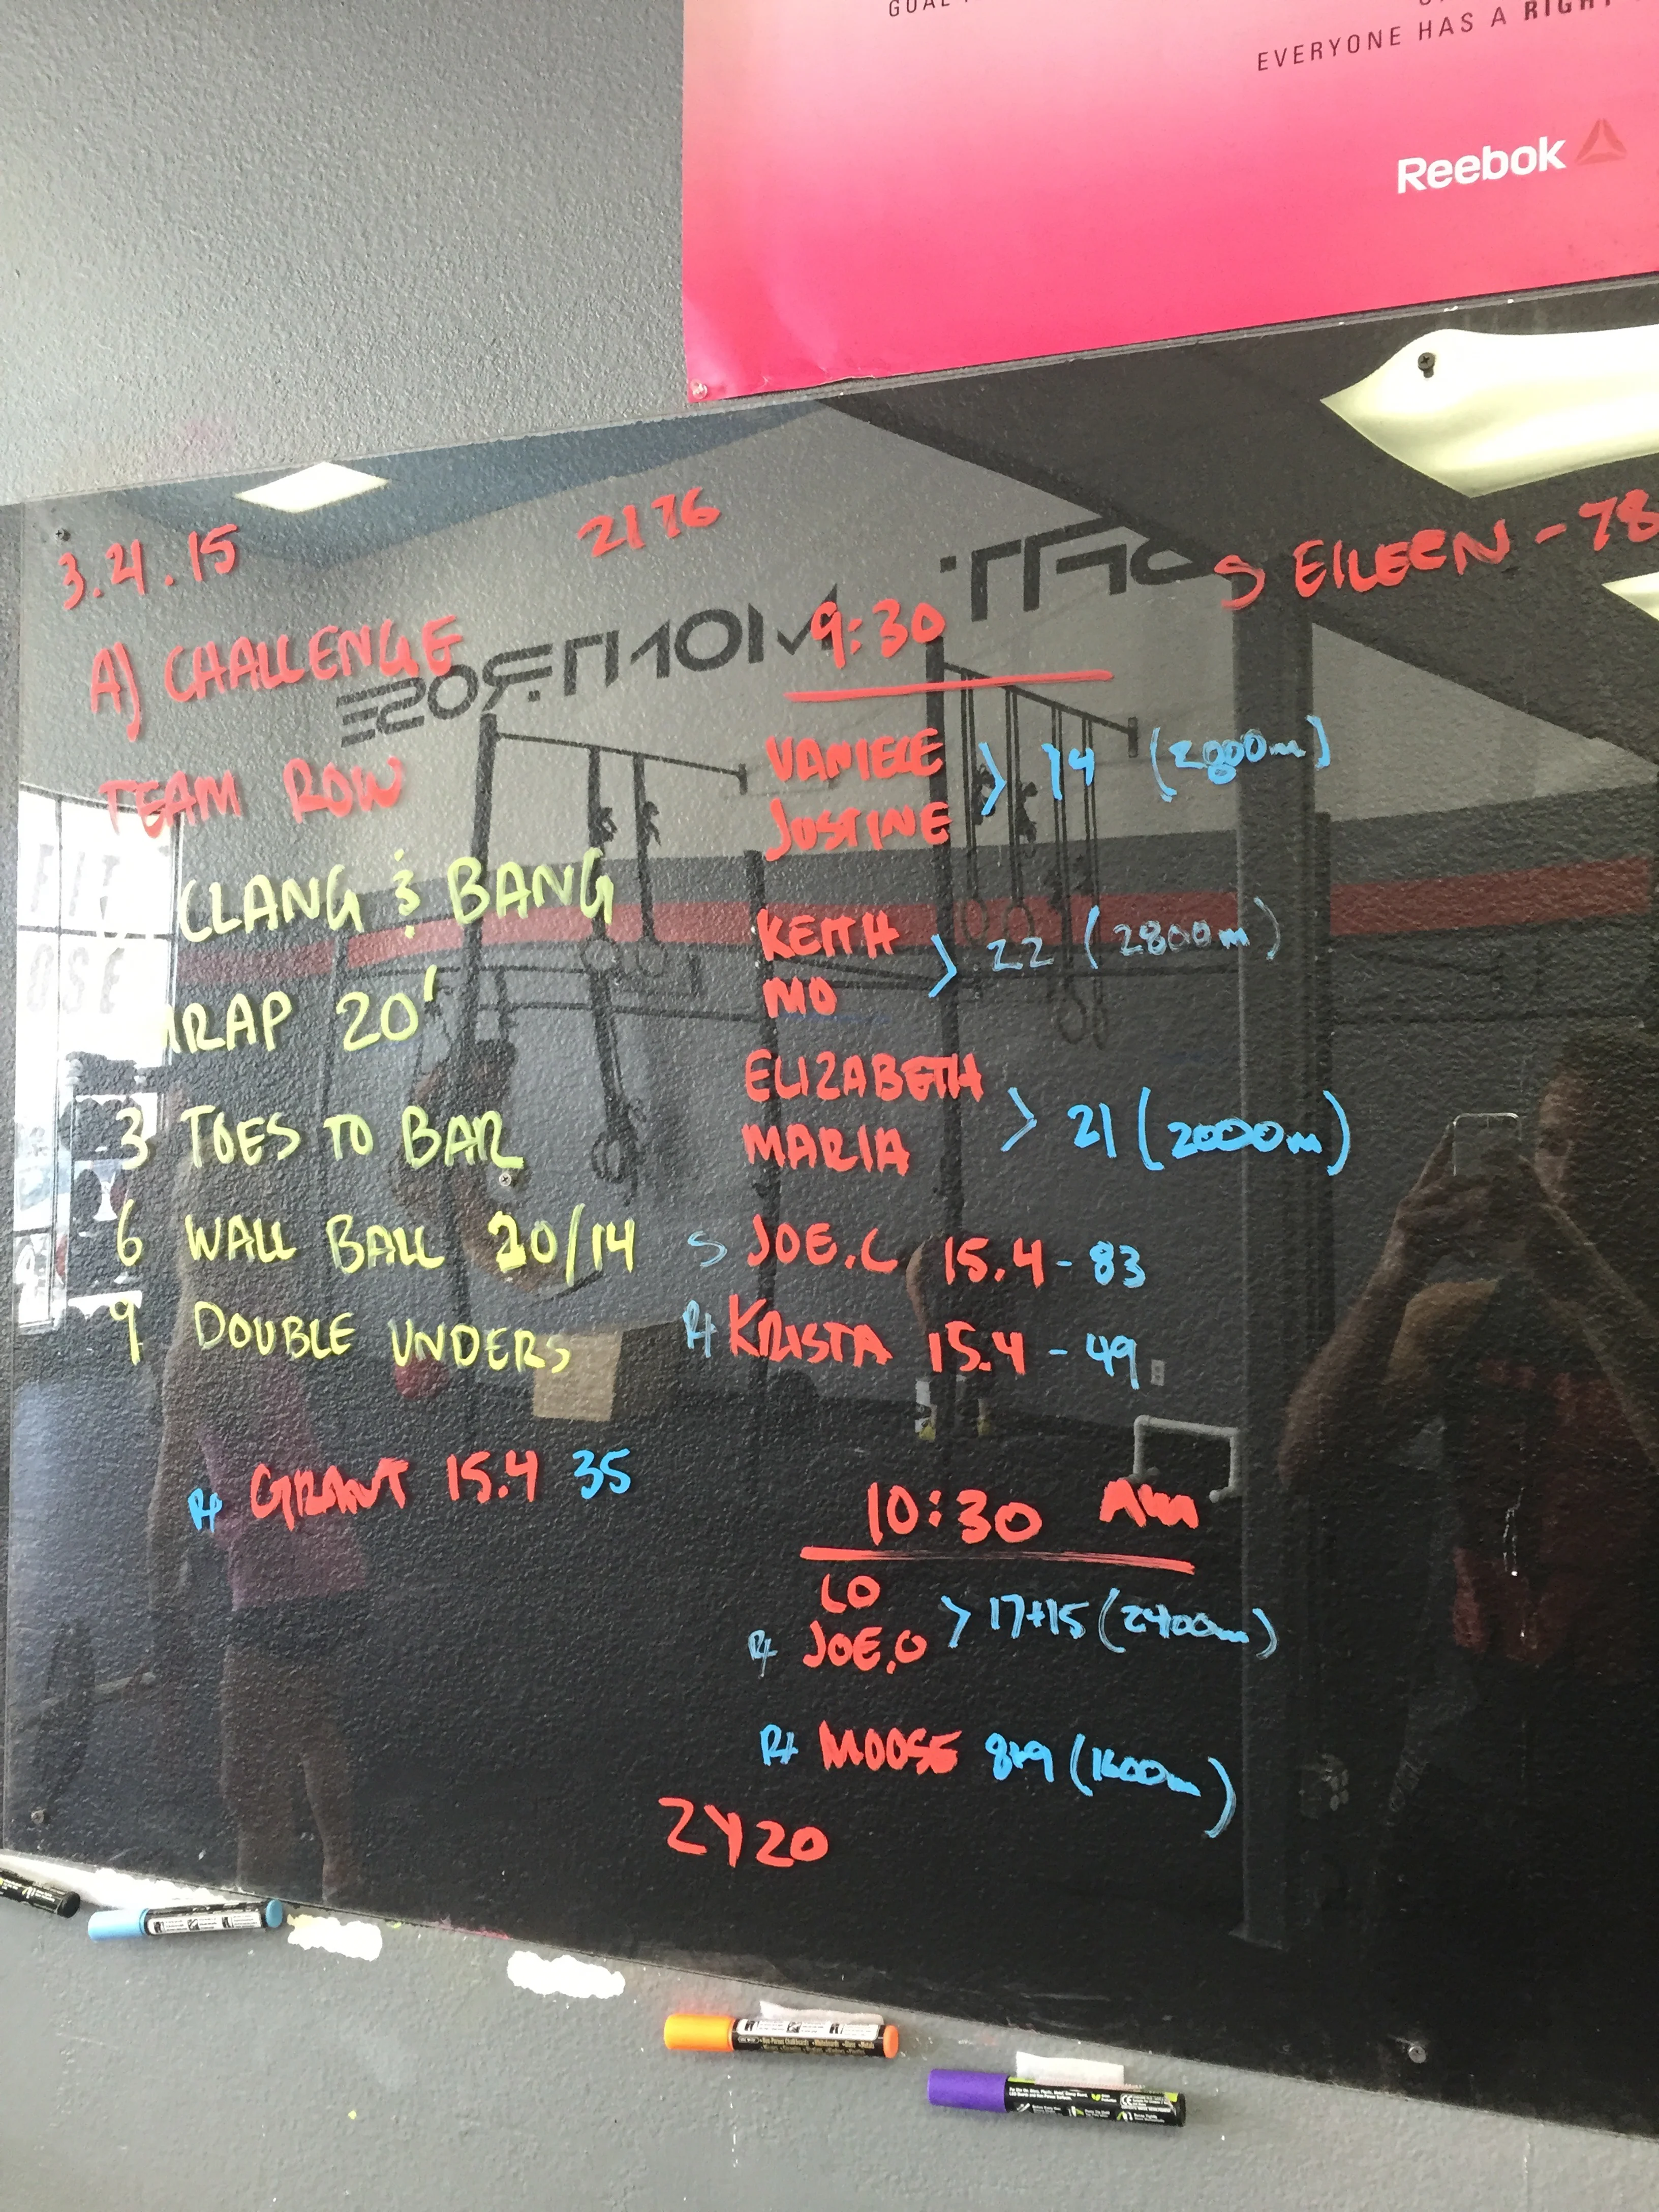 GOAL
EVERYONE HAS A RIGHT
Reebok
3.21.15
2176
S EILEEN - 78
A) CHALLENGE
TEAM ROW
CLANG & BANG
RAP 20'
3 TOES TO BAR
6 WALL BALL 20/14
9 DOUBLE UNDERS
RX GRANT 15.4 35
9:30
JUSTINE > 14 (2800m)
KEITH
MO > 22 (2800m)
ELIZABETH
MARIA > 21 (2000m)
S JOE.C 15.4 - 83
RX KRISTA 15.4 - 49
10:30 AM
LO
RX JOE.O > 17+15 (2400m)
RX MOOSE 8+9 (1600m)
2420